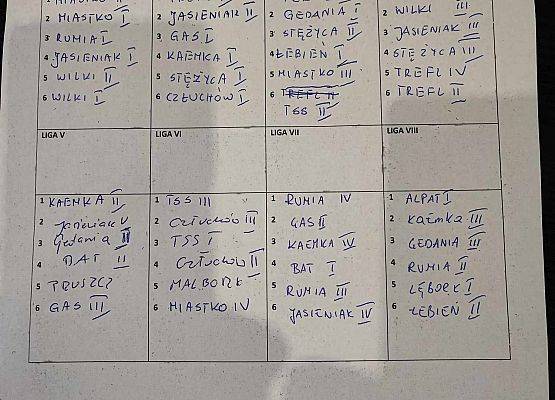 2 MIASTKO III
3 RUMIA I
4 JASIENIAK I
5 WILKI II
6 WILKI I
2 JASIENIAK II
3 GAS I
4 KAEMKA I
5 STĘŻYCA I
6 CZŁUCHÓW I
2 GEDANIA I
3 STĘŻYCA II
4 ŁEBIEŃ I
5 MIASTKO III
6 TREFL II
TSS II
2 WILKI III
3 JASIENIAK III
4 STĘŻYCA III
5 TREFL IV
6 TREFL II
LIGA V
LIGA VI
LIGA VII
LIGA VIII
1 KAEMKA II
2 Jasieniak V
3 Gedania II
4 BAT II
5 PRUSZCZ
6 GAS III
1 TSS III
2 CZŁUCHÓW III
3 TSS I
4 CZŁUCHÓW II
5 MALBORK
6 MIASTKO IV
1 RUMIA IV
2 GAS II
3 KAEMKA IV
4 BAT I
5 RUMIA III
6 JASIENIAK IV
1 ALPAT I
2 KAEMKA III
3 GEDANIA III
4 RUMIA II
5 LĘBORK I
6 ŁEBIEŃ II